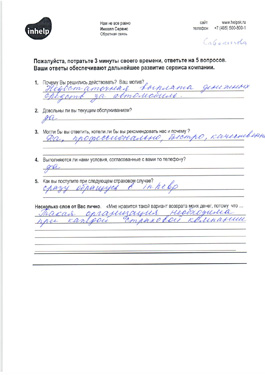 inhelp
Нам не все равно
Инхелп Сервис
Обратная связь
сайт www.inhelp.ru
телефон
Пожалуйста, потратьте 3 минуты своего времени, ответьте на 5 вопросов.
Ваши ответы обеспечивают дальнейшее развитие сервиса компании.
1. Почему Вы решились действовать? Ваш мотив?
Недостаточная выплата денежных
средств за автомобиль.
2. Довольны ли вы текущим обслуживанием?
да
3. Могли бы вы ответить, хотели ли бы вы рекомендовать нас и почему?
Да, профессионально, быстро, качественно
4. Выполняются ли нами условия, согласованные с вами по телефону?
да
5. Как вы поступите при следующем страховом случае?
сразу обращусь в
Несколько слов от Вас лично. «Мне нравится такой вариант возврата моих денег, потому что ...
Такая организация необходима
при каждой страховой компании